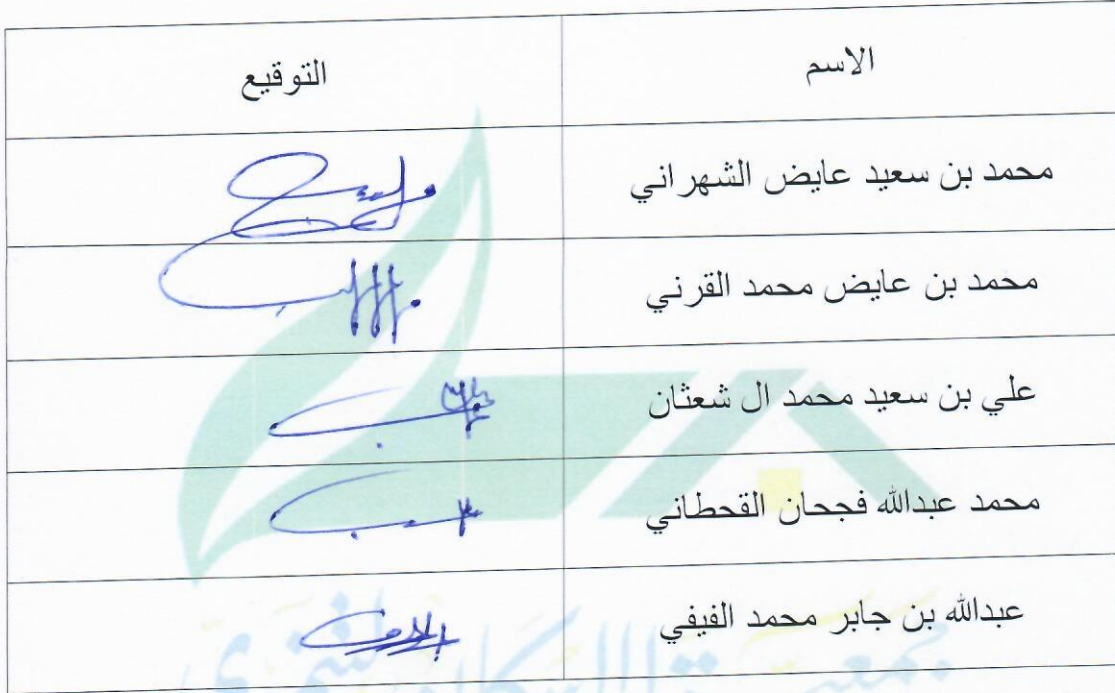 الاسم
التوقيع
محمد بن سعيد عايض الشهراني
محمد بن عايض محمد القرني
علي بن سعيد محمد ال شعثان
محمد عبدالله فجحان القحطاني
عبدالله بن جابر محمد الفيفي